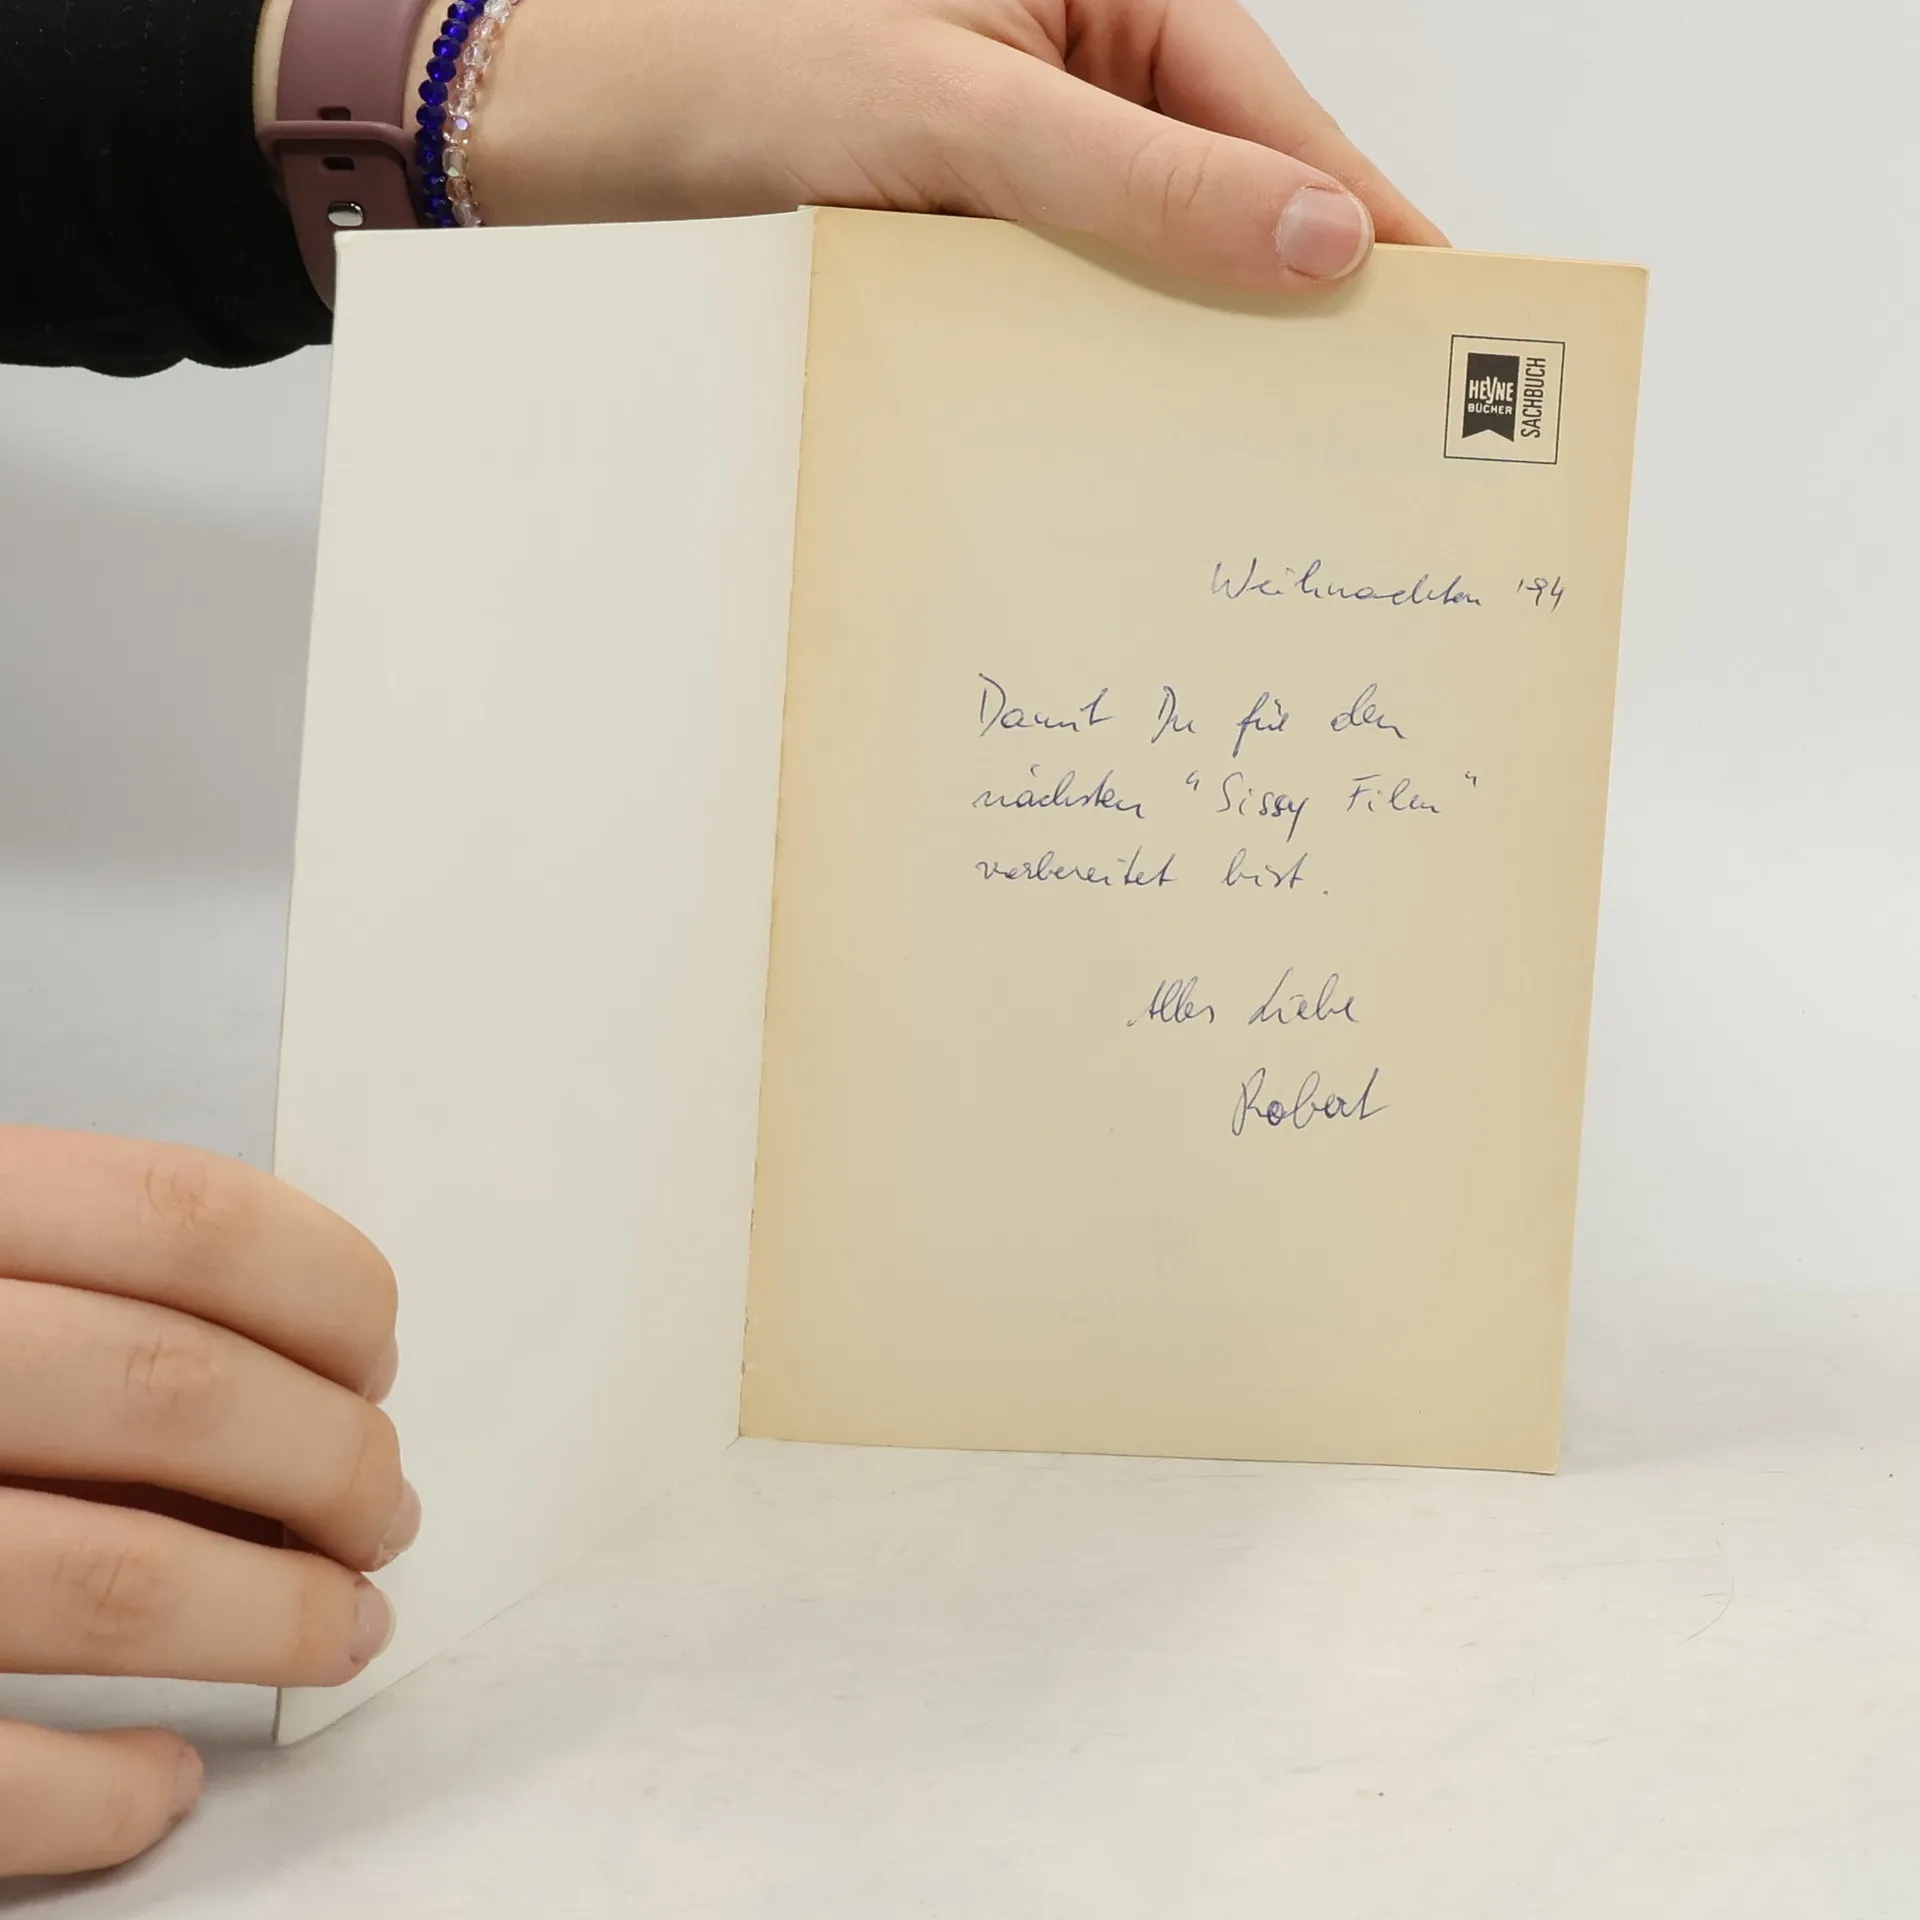 HEYNE
BÜCHER
SACHBUCH
Weihnachten '94
Damit Du für den
nächsten "Sissy Film"
vorbereitet bist.
Alles Liebe
Robert